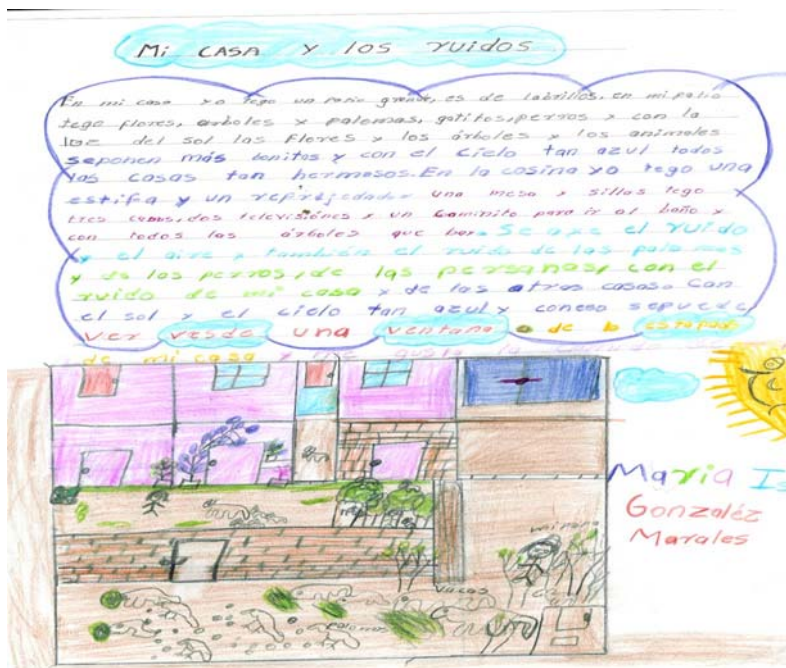 Mi CASA Y los ruidos
En mi casa yo tego un patio grande, es de labrillos, en mi patio
tego flores, arboles y palomas, gatitos, perros y con la
luz del sol las flores y los árboles y los animales
seponen más bonitos y con el cielo tan azul todos
las casas tan hermosos. En la cosina yo tego una
estifa y un una mesa y sillas tego
tres dos televisiónes y un caminito para ir al baño y
con todos los árboles que Se axe el ruido
y el aire y también el ruido de las palomas
y de los perros, de las persanas, con el
ruido de mi casa y de las atras casas Can
el sol y el cielo tan azul y coneso sepuede
ver desde una ventana o de
de mi casa y me gusta la
Maria
Gonzaléz
Marales
vacas
palomas